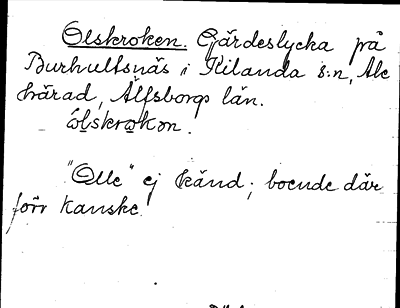 Olskroken. Gärdeslycka på
Burhultsnäs i Kilanda s:n, Ale
härad, Älfsborgs län.
ω̂lskrωkon.
"Olle" ej känd; boende där
förr kanske